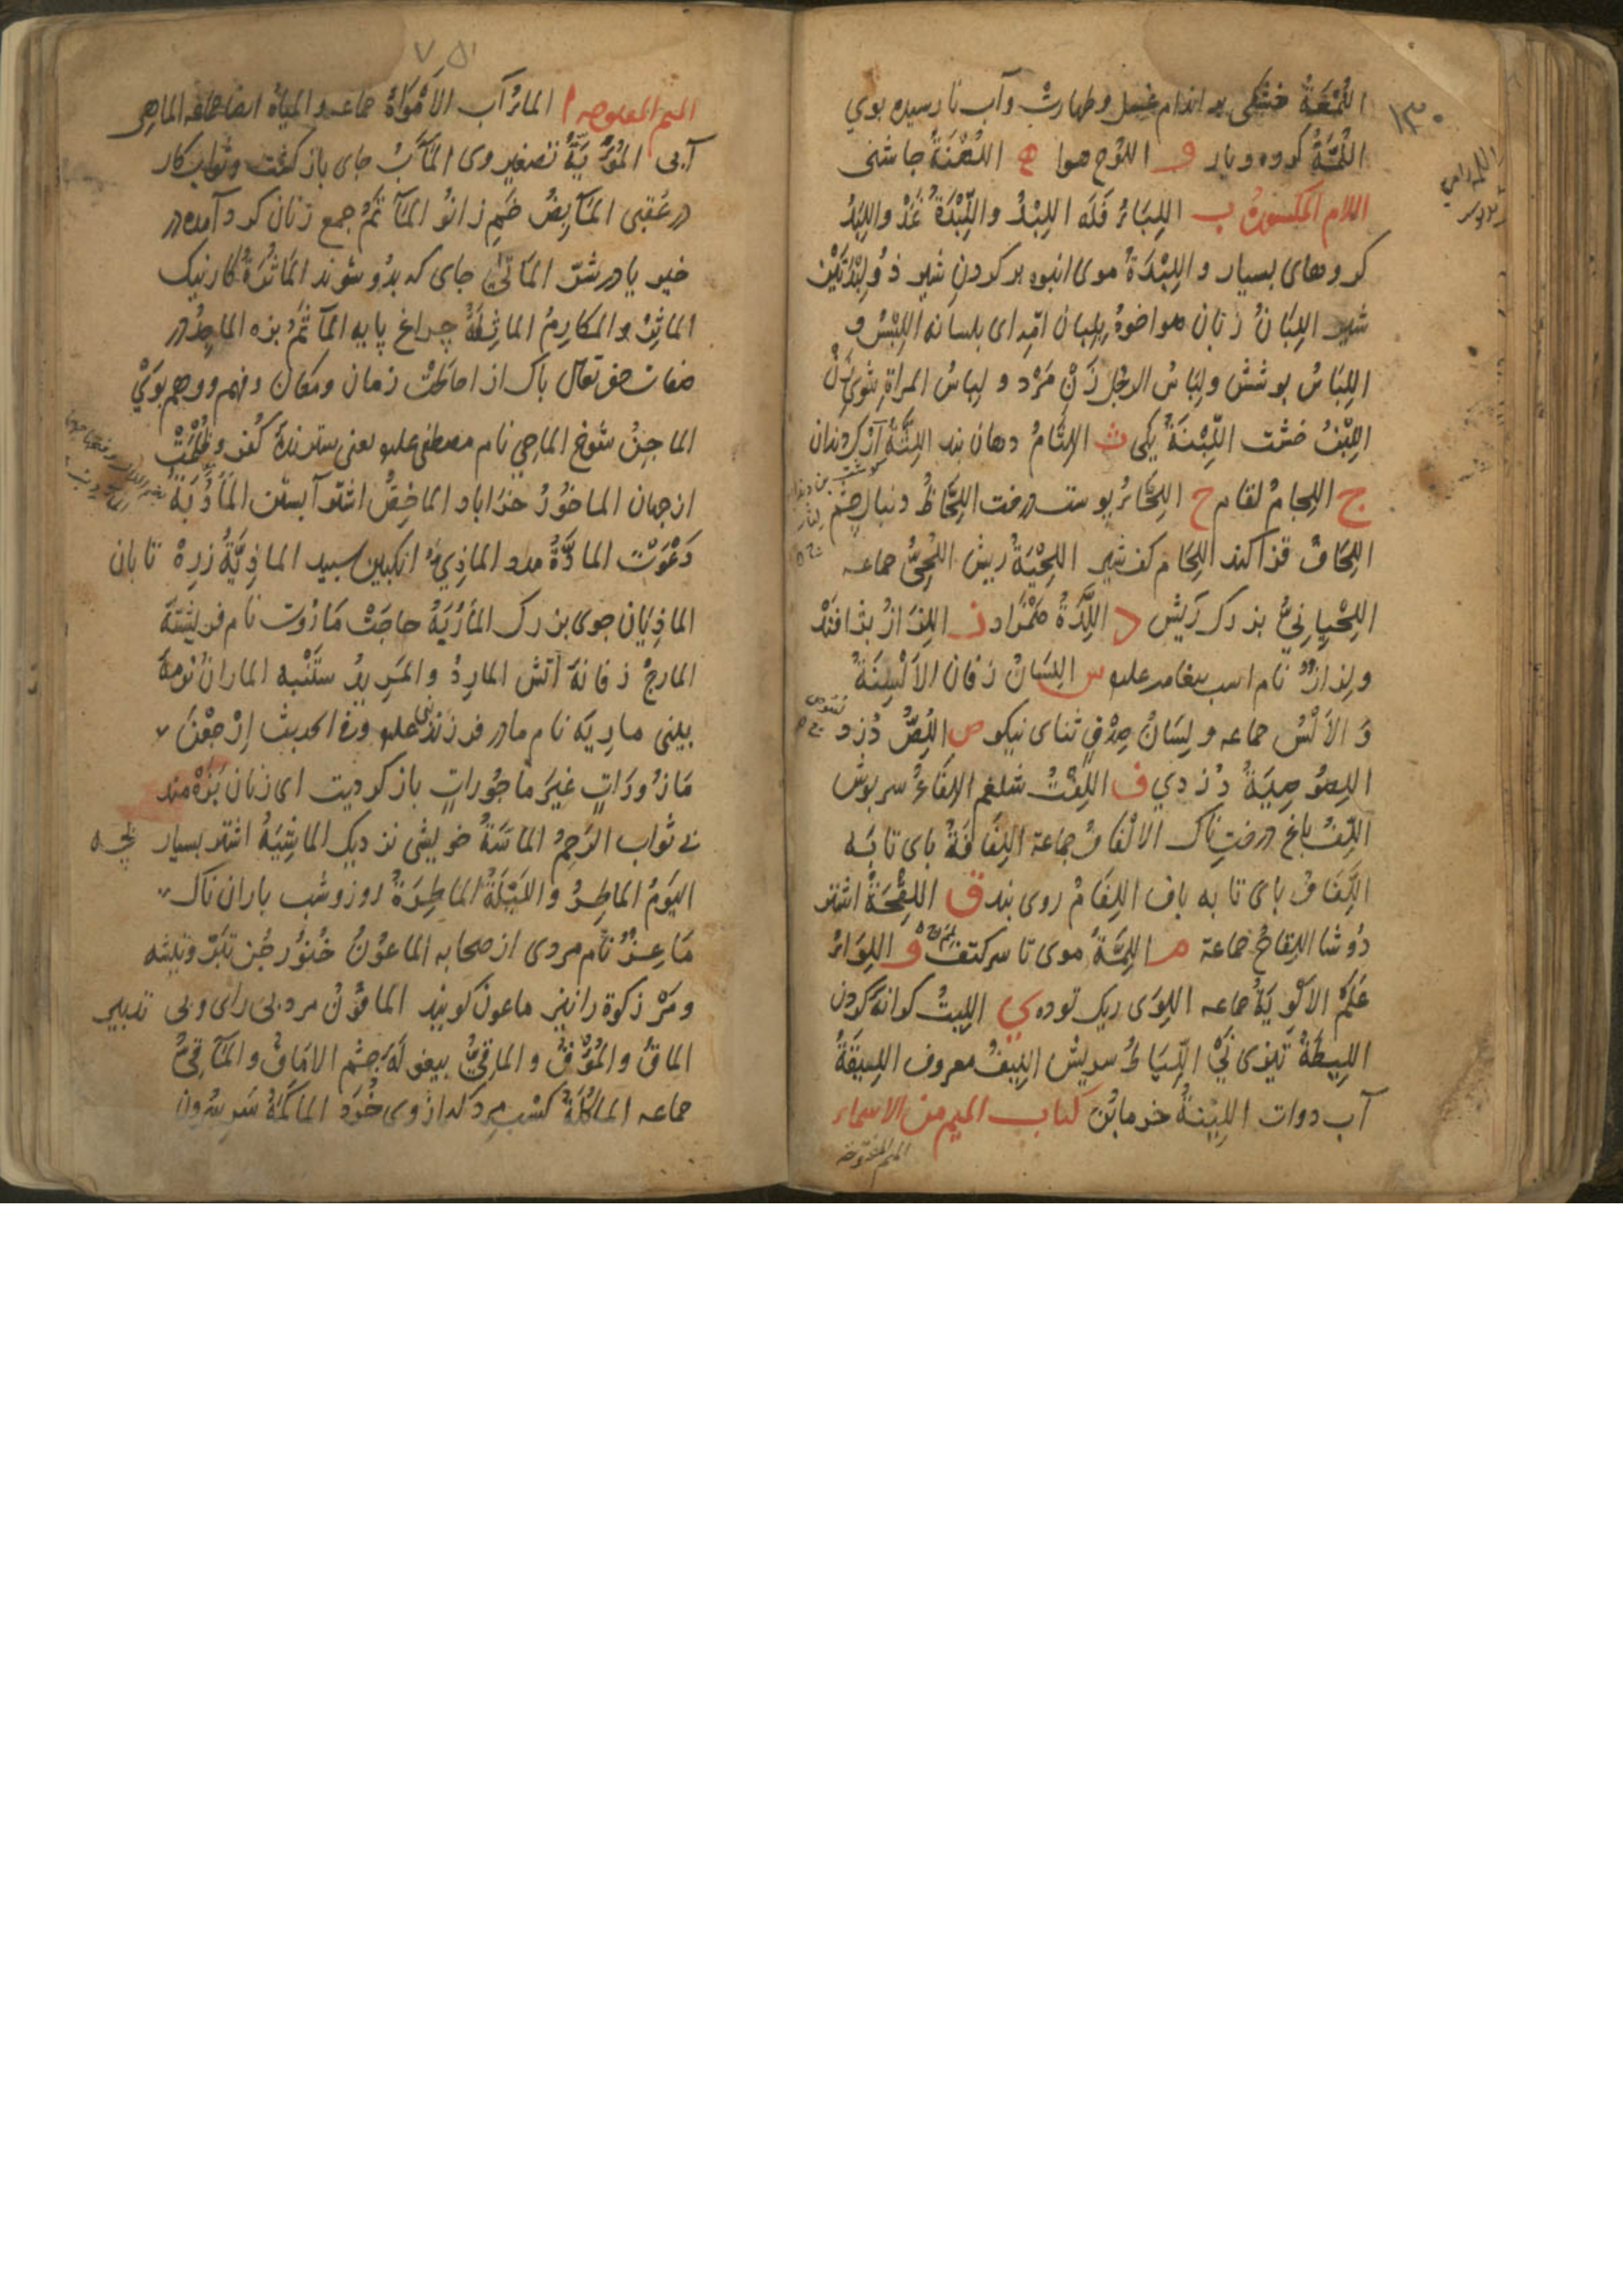 ۱۳۰
اللُّمْعَةُ خشکی بر اندام غسل و طهارت و آب نا رسیده بوی
اللُّمَّةُ کروه و یار و اللُّوحُ هوا ه اللُّهْنَةُ چاشنی
اللام المکسورة ب اللِبَاءُ فَلَه اللِبْدُ واللِّبْدَةُ نَمَدْ واللِبَدُ
کروهای بسیار و اللِبْدَةُ موی انبوه بر کردنِ شیر ذُولِبْدَتَیْنِ
شیر اللِبَانُ زبان هو اخوهُ بِلِبانِ امّه ای بلسانه اللِبْسُ و
اللِبَاسُ پوشش ولِبَاسُ الرجُل زَنِ مَرْد و لِباسُ المراةِ شویِ زَنْ
اللِبْنُ خشت اللِّبْنَةُ یکی ث اللِّثَامُ دهان بند اللِثَةُ
ج اللِجامُ لغام ح اللِحَاءُ پوست درخت اللِحَاظُ دنبال چشم
اللِحَافُ قزاکند اللِحَام کفشیر اللِحْیَةُ ریش اللُحِیُّ جماعه
اللِحْیانِیُّ بزرک ریش د اللِّدَةُ همزاد ز اللِزَازُ
ولِزازٌ نام اسب پیغامبر علیه س اللِسَانُ زفان الاَلْسِنَةُ
وَ الاَلْسُن جماعه ولِسَانُ صِدْقٍ ثنای نیکو ص اللِّصُّ دُزد
اللِصُوصِیَةُ دُزدی ف اللِفْتُ شلغم اللِفَاعُ سربوش
اللِّفُّ باغ درختناک الالْفَافُ جماعة اللِفَافَةُ بای تابَه
اللِفَافُ بای تابه باف اللِفَامُ روی بند ق اللِقْحَةُ اشتر
دُوشا اللِقاحُ جماعة م اللِمَّةُ موی تا سرکتف و اللِوَاءُ
عَلَمْ الاَلْوِیَةُ جماعه اللِوَی ریک توده ی اللِیتُ کرانهٔ کردن
اللِیطَةُ تیزی نَیْ اللِّیَاطُ سریش اللِیفُ معروف اللِیقَةُ
آب دوات اللِیْنَةُ خرمابُن کتاب المیم من الاسماء
المیم المفتوحة
۷۵۱
المیم المفتوحه ا الماءُ آب الاَمْوَاهُ جماعه و المِیاهُ
آبی المُوَیَّةُ تصغیر وی المَآبُ جای باز کشت و ثواب کار
در عُقبی المَآبِضُ خَمِ زانو المَآتَمُ جمع زنان کرد آمده در
خیر یا در شرّ المَاتَی جای که بدو شوند المَاثُرَةُ کار نیک
المآثِرُ والمکارِمُ الماثِلَةُ چراغ پایه المَآثَمُ بزه الماجِدُ در
صفات حق تعالی پاک از احاطتِ زمان ومکان و فهم و وهم بویْ
الماجِنُ شوخ الماحِی نام مصطفی علیه یعنی سترندهٔ کُفر و ظُلْمَتْ
از جهان الماخُورُ خراباد الماخِضُ اشتر آبستن المَأدُبَةُ
دَعْوَت المادَّةُ مدد الماذِیُّ انکبین سپید الماذِیَّةُ زرهْ تابان
الماذِیَان جوی بزرک المَأرَبَةُ حاجَتْ مَارُوت نام فریشتهَ
المارِجُ زفانهَ آتش المارِدُ و المَرِیدُ ستَنْبه المارانُ نَرْمهَ
بینی ماریَه نام مادر فرزند نبی علیه وفی الحدیث اِرْجِعْنَ
مَازُورَاتٍ غیرَ مَاجُوراتٍ باز کردیت ای زنان بَزَهْ مند
نی ثواب الرَحِمُ المَاسَّةُ خویشی نزدیک الماشِیَةُ اشتر بسیار بچه
الیَومُ الماطِرُ واللَیْلَةُ الماطِرَةُ روز و شب باران ناک
مَاعِزٌ نام مردی از صحابه الماعُونُ خُنُور چُن تَبَرْ و تیشه
و مَرْ زکوة را نیز ماعون کویند المافُونُ مرد بی رای و بی تدبیر
الماقُ والمُؤْقُ والماقِیُّ بیغولهَ چشم الامَاقُ والمَآقِیُّ
جماعه المَاکَلَةُ کَسْبِ مرد که از وی خُورَد الماکَمَةُ سَرِ سُرُون